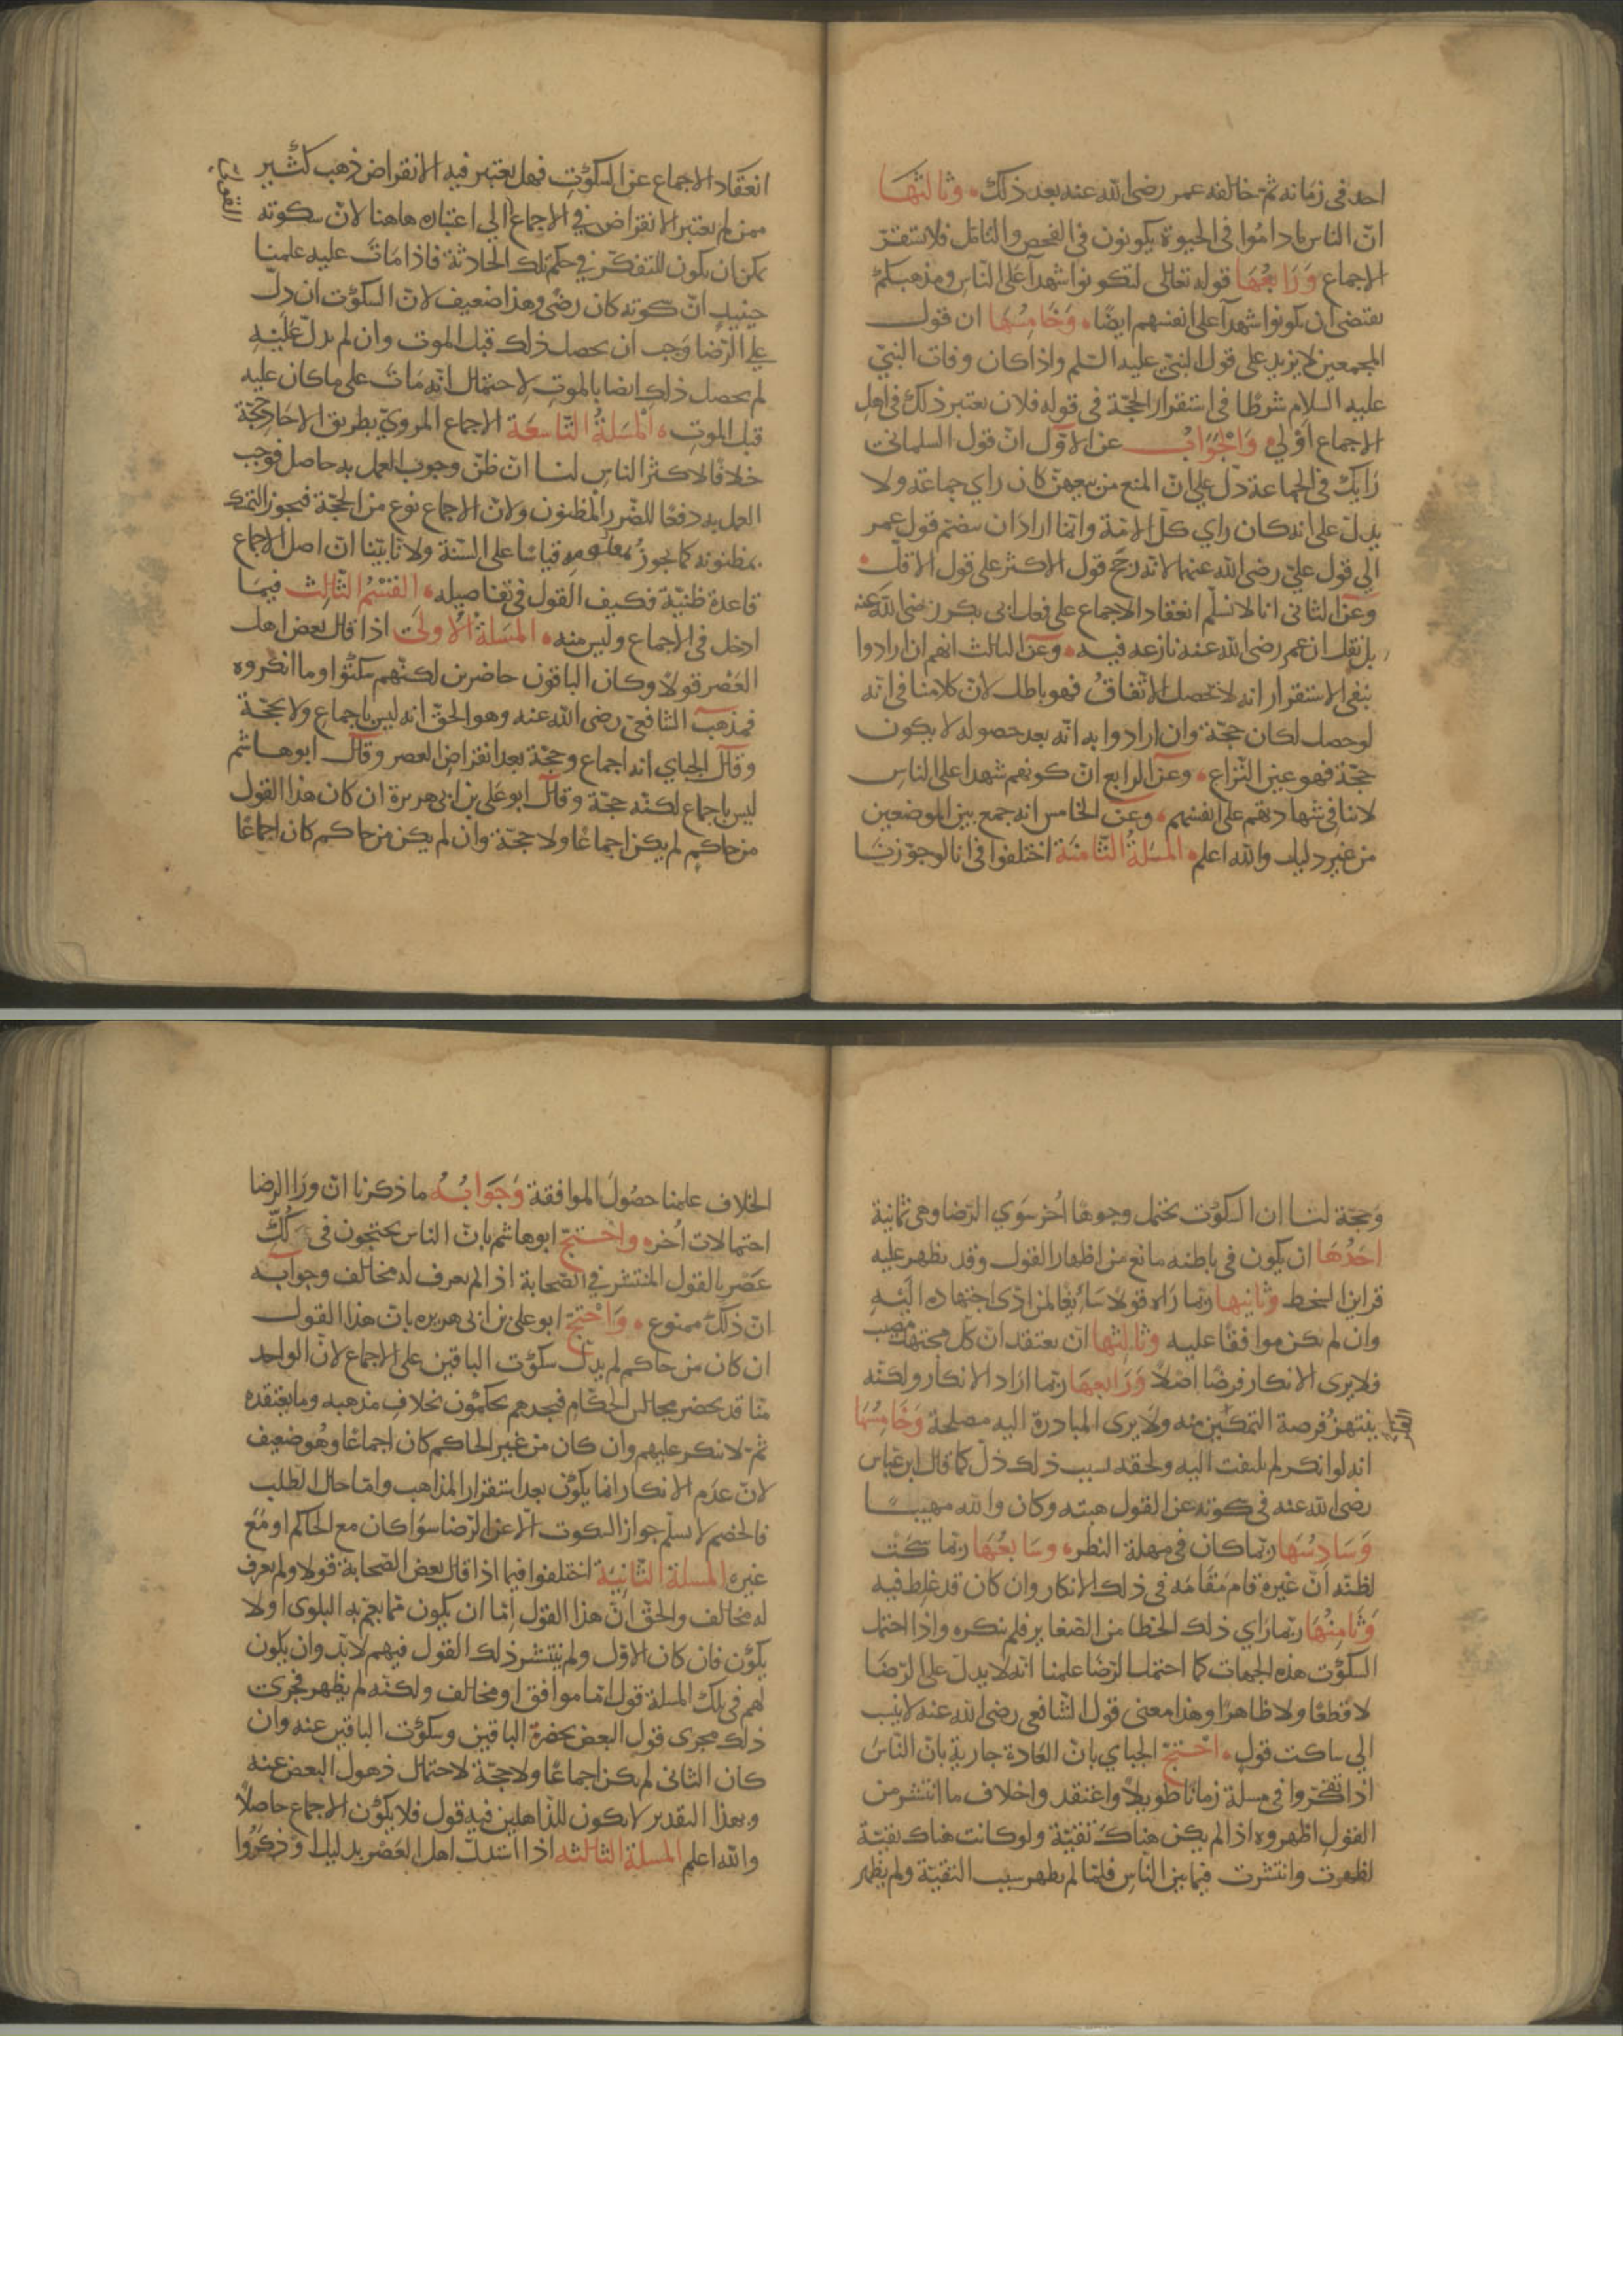 احد فى زمانه ثم خالفه عمر رضى الله عنه بعد ذلك وثالثها
ان الناس ما داموا فى الحيوة يكونون فى الفحص والتامل فلا يستقر
الاجماع ورابعها قوله تعالى لتكونوا شهدآ على الناس ومذهبكم
يقتضى ان يكونوا شهدآ على انفسهم ايضا وخامسها ان قول
المجمعين لا يزيد على قول النبى عليه السلم واذا كان وفات النبى
عليه السلام شرطا فى استقرار الحجة فى قوله فلان يعتبر ذلك فى اهل
الاجماع اولى والجواب عن الاول ان قول السلمانى
رايك فى الجماعة دل على ان المنع من بيعهن كان راى جماعة ولا
يدل على انه كان راي كل الامة وانما اراد ان ينضم قول عمر
الي قول على رضى الله عنهما لانه رجح قول الاكثر على قول الاقل
وعن الثانى انا لا نسلم انعقاد الاجماع على فعل ابى بكر رضى الله عنه
بل نقل ان عمر رضى الله عنه نازعه فيه وعن الثالث انهم ان ارادوا
بنفى الاستقرار انه لا يحصل الاتفاق فهو باطل لان كلامنا فى انه
لو حصل لكان حجة وان ارادوا به انه بعد حصوله لا يكون
حجة فهو عين النزاع وعن الرابع ان كونهم شهدا على الناس
لا ينافى شهادتهم على انفسهم وعن الخامس انه جمع بين الموضعين
من غير دليل والله اعلم المسلة الثامنة اختلفوا فى انا لو جوزنا
انعقاد الاجماع عن السكوت فهل يعتبر فيه الانقراض ذهب كثير
ممن لم يعتبر الانقراض في الاجماع الي اعتباره هاهنا لان سكوته
يمكن ان يكون للتفكر في حكم تلك الحادثة فاذا مات عليه علمنا
حينيذ ان سكوته كان رضى وهذا ضعيف لان السكوت ان دل
علي الرضا وجب ان يحصل ذلك قبل الموت وان لم يدل عليه
لم يحصل ذلك ايضا بالموت لاحتمال انه مات على ما كان عليه
قبل الموت المسلة التاسعة الاجماع المروي بطريق الاحاد حجة
خلافا لاكثر الناس لنا ان ظن وجوب العمل به حاصل فوجب
العمل به دفعا للضرر المظنون ولان الاجماع نوع من الحجة فيجوز التمسك
بمظنونه كما يجوز بمعلومه قياسا على السنة ولانا بينا ان اصل الاجماع
قاعدة ظنية فكيف القول فى تفاصيله القسم الثالث فيما
ادخل فى الاجماع وليس منه المسلة الاولى اذا قال بعض اهل
العصر قولا وكان الباقون حاضرين لكنهم سكتوا وما انكروه
فمذهب الشافعى رضى الله عنه وهو الحق انه ليس باجماع ولا بحجة
وقال الجباي انه اجماع وحجة بعد انقراض العصر وقال ابو هاشم
ليس باجماع لكنه حجة وقال ابو على بن ابى هريرة ان كان هذا القول
من حاكم لم يكن اجماعا ولا حجة وان لم يكن من حاكم كان اجماعا
وحجة لنا ان السكوت يحتمل وجوها اخر سوي الرضا وهى ثمانية
احدها ان يكون فى باطنه مانع من اظهار القول وقد يظهر عليه
قراين السخط وثانيها ربما راه قولا سايغا لمن ادى اجتهاده اليه
وان لم يكن موافقا عليه وثالثها ان يعتقد ان كل مجتهد مصيب
فلا يرى الانكار فرضا اصلا ورابعها ربما اراد الانكار ولكنه
ينتهز فرصة التمكين منه ولا يرى المبادرة اليه مصلحة وخامسها
انه لو انكر لم يلتفت اليه ولحقه بسبب ذلك ذل كما قال ابن عباس
رضى الله عنه فى سكوته عن القول هبته وكان والله مهيبا
وسادسها ربما كان فى مهلة النظر وسابعها ربما سكت
لظنه ان غيره قام مقامه فى ذلك الانكار وان كان قد غلط فيه
وثامنها ربما راي ذلك الخطا من الصغاير فلم ينكره واذا احتمل
السكوت هذه الجهات كما احتمل الرضا علمنا انه لا يدل على الرضا
لا قطعا ولا ظاهرا وهذا معنى قول الشافعى رضى الله عنه لا ينسب
الي ساكت قول احتج الجباي بان العادة جارية بان الناس
اذا تفكروا فى مسلة زمانا طويلا واعتقدوا خلاف ما انتشر من
القول اظهروه اذا لم يكن هناك تقية ولو كانت هناك تقية
لظهرت وانتشرت فيما بين الناس فلما لم يظهر سبب التقية ولم يظهر
الخلاف علمنا حصول الموافقة وجوابه ما ذكرنا ان ورا الرضا
احتمالات اخر واحتج ابو هاشم بان الناس يحتجون فى كل
عصر بالقول المنتشر في الصحابة اذا لم يعرف له مخالف وجوابه
ان ذلك ممنوع واحتج ابو على بن ابى هريره بان هذا القول
ان كان من حاكم لم يدل سكوت الباقين على الاجماع لان الواحد
منا قد يحضر مجالس الحكام فيجدهم يحكمون بخلاف مذهبه وما يعتقده
ثم لا ينكر عليهم وان كان من غير الحاكم كان اجماعا وهو ضعيف
لان عدم الانكار انما يكون بعد استقرار المذاهب واما حال الطلب
فالخصم لا يسلم جواز السكوت الا عن الرضا سوا كان مع الحاكم او مع
غيره المسلة الثانية اختلفوا فيما اذا قال بعض الصحابة قولا ولم يعرف
له مخالف والحق ان هذا القول اما ان يكون مما يعم به البلوى او لا
يكون فان كان الاول ولم ينتشر ذلك القول فيهم لا بد وان يكون
لهم فى تلك المسلة قول اما موافق او مخالف ولكنه لم يظهر فجرى
ذلك مجرى قول البعض بحضرة الباقين وسكوت الباقين عنه وان
كان الثانى لم يكن اجماعا ولا حجة لاحتمال ذهول البعض عنه
وبهذا التقدير لا يكون للذاهلين فيه قول فلا يكون الاجماع حاصلا
والله اعلم المسلة الثالثه اذا استدل اهل العصر بدليل وذكروا